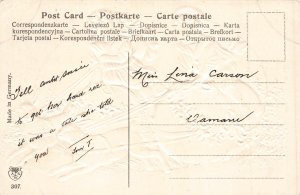 Post Card — Postkarte — Carte postale
Correspondenzkarte — Levelező Lap — Dopisnice — Dopisnica — Karta
korespondencyjna — Cartolina postale — Briefkaart — Carta postala — Brefkort —
Tarjeta postal — Korespondenční lístek — Дописна карта — Открытое письмо
Made in Germany.
Tell
to get her hand
it was a she told
you
Miss Lena Carson
307.